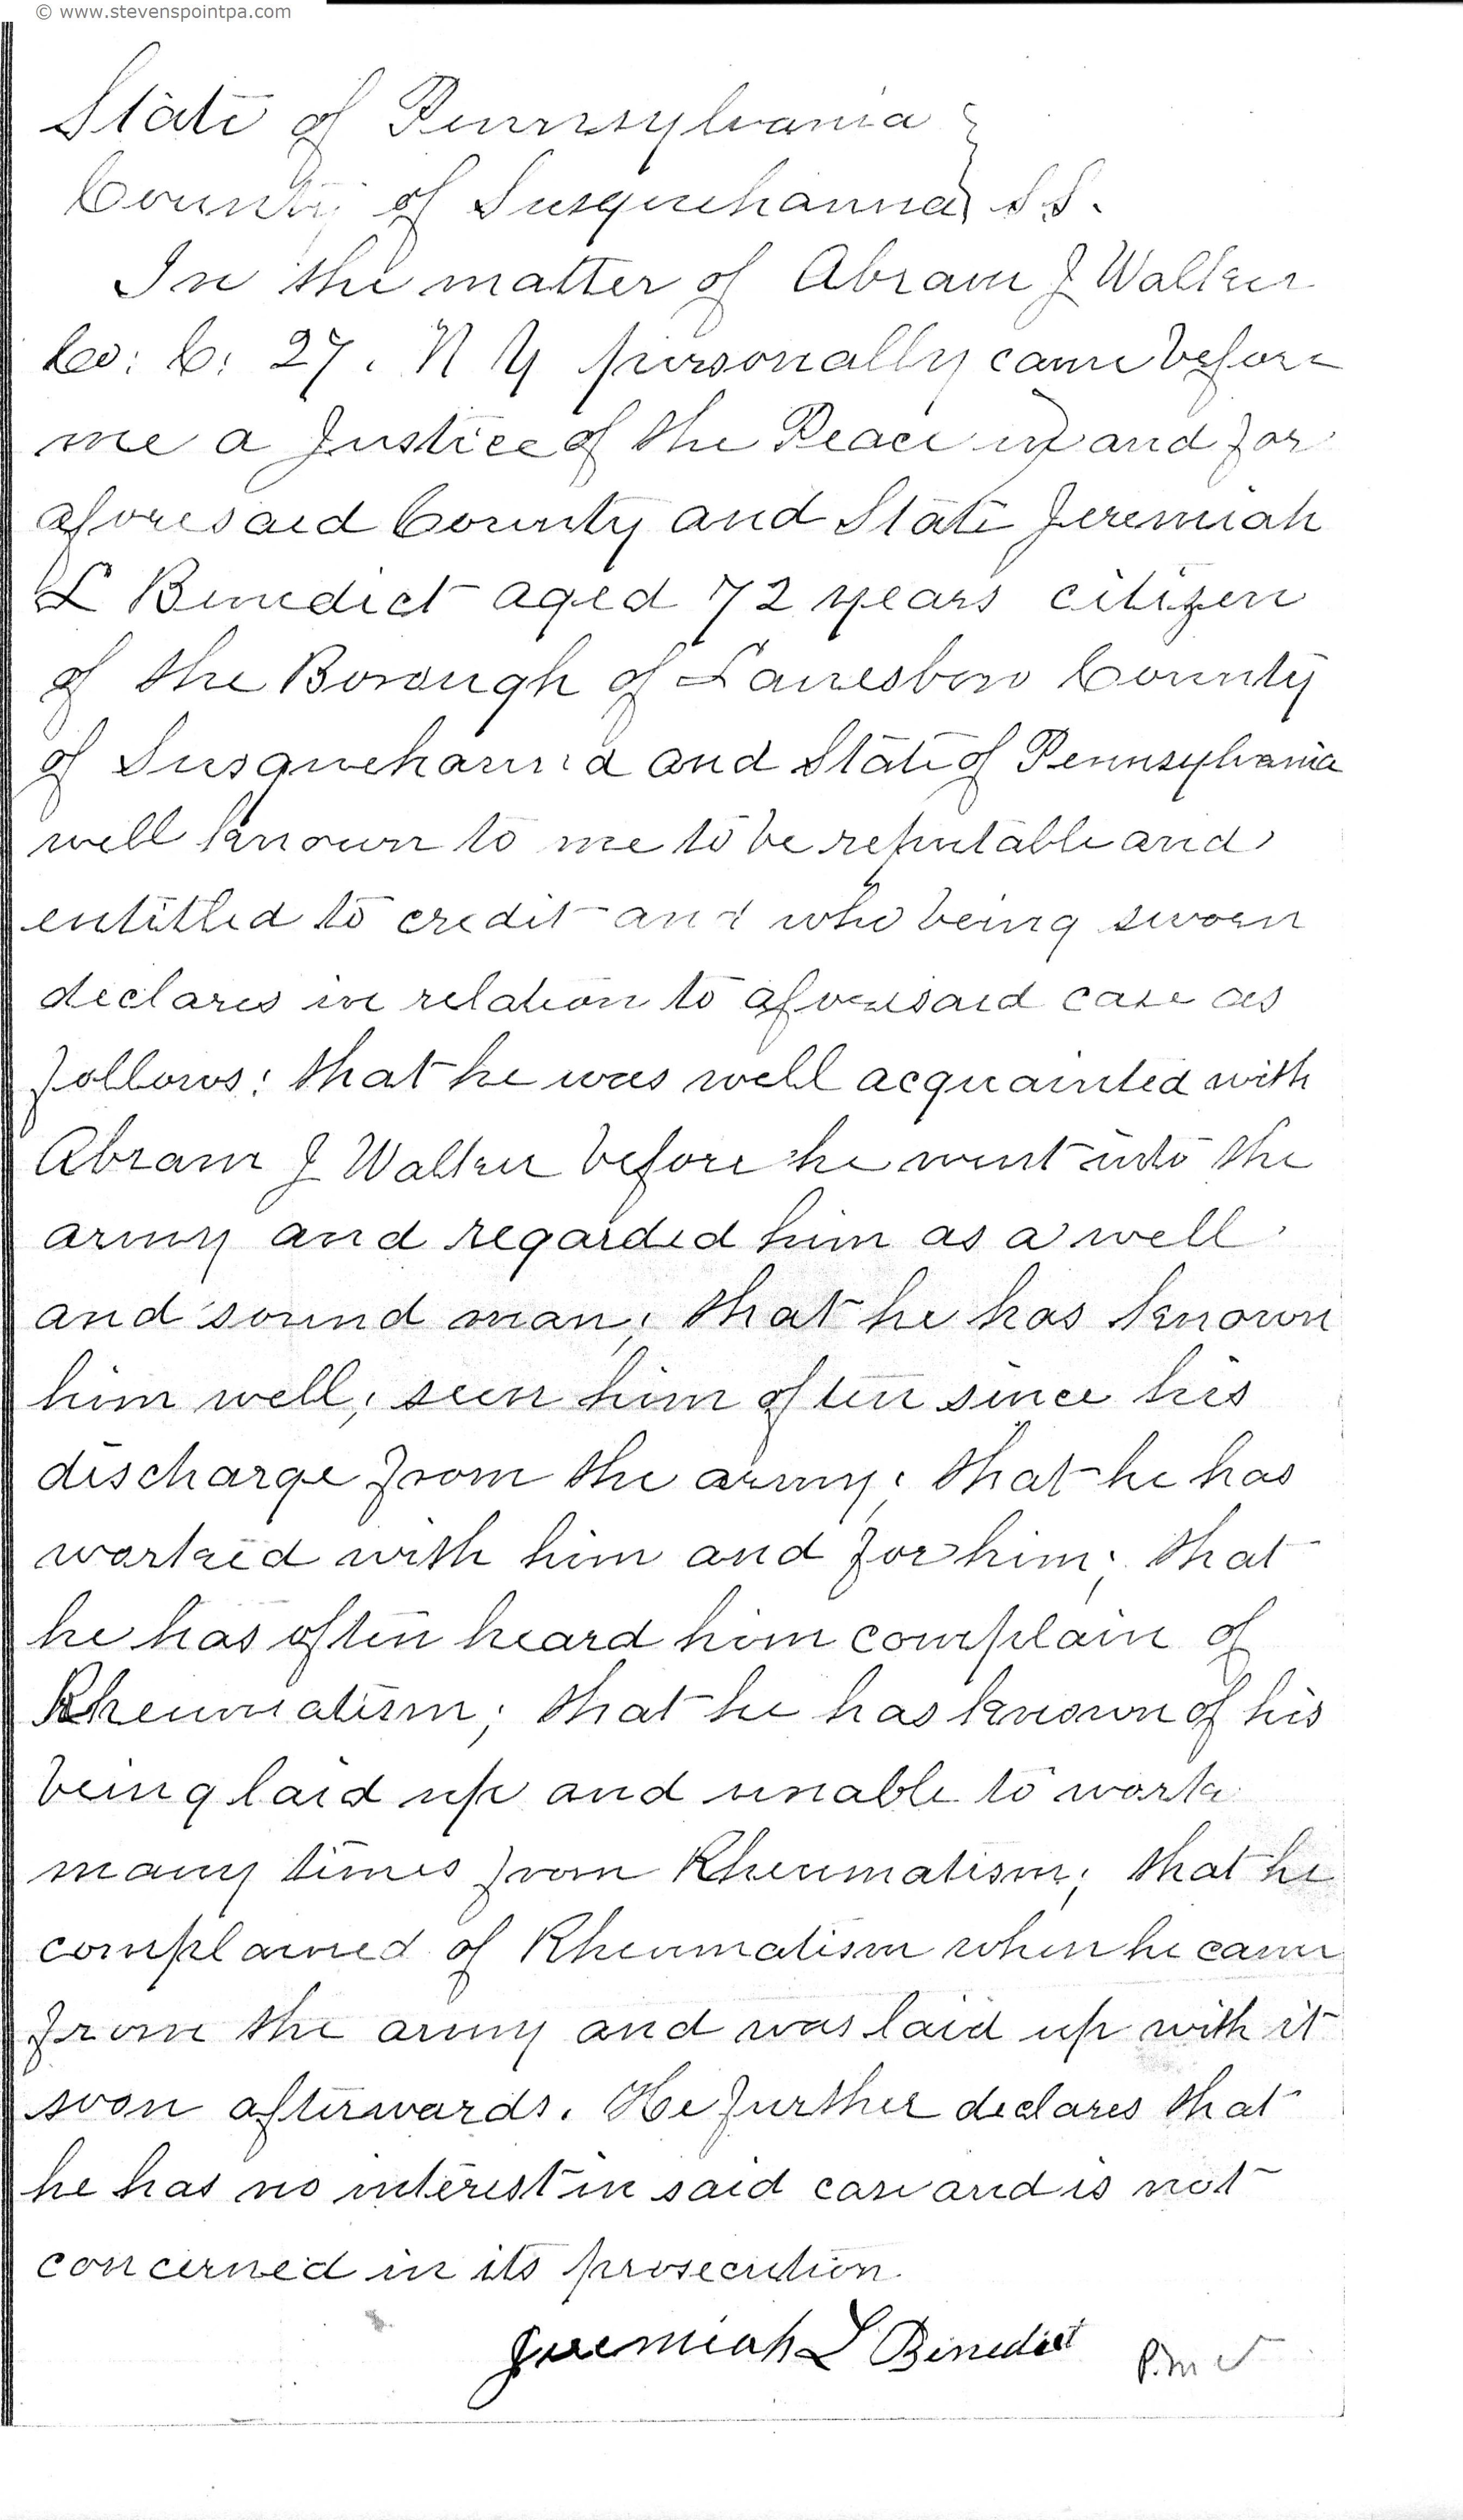 © www.stevenspointpa.com
State of Pennsylvania }
County of Susquehanna } S.S.
In the matter of Abram J Walker
Co: C: 27. N Y personally came before
me a Justice of the Peace in and for
aforesaid County and State Jeremiah
L Benedict aged 72 years citizen
of the Borough of Lanesboro County
of Susquehanna and State of Pennsylvania
well known to me to be reputable and
entitled to credit and who being sworn
declares in relation to aforesaid case as
follows: that he was well acquainted with
Abram J Walker before he went into the
army and regarded him as a well
and sound man; that he has known
him well; seen him often since his
discharge from the army; that he has
worked with him and for him; that
he has often heard him complain of
Rheumatism; that he has known of his
being laid up and unable to work
many times from Rheumatism; that he
complained of Rheumatism when he came
from the army and was laid up with it
soon afterwards. He further declares that
he has no interest in said case and is not
concerned in its prosecution.
Jeremiah L Benedict